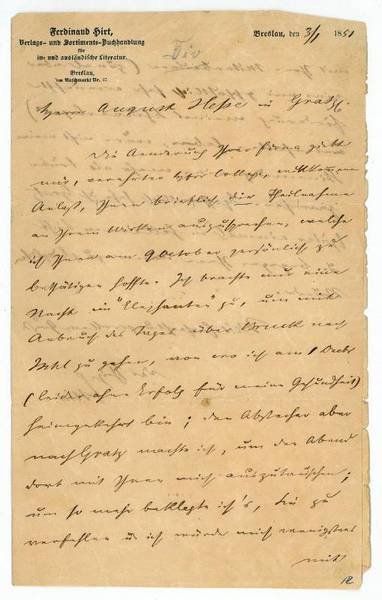 Ferdinand Hirt,
Verlags- und Sortiments-Buchhandlung
für
in- und ausländische Literatur.
Breslau,
am Naschmarkt Nr. 47.
Breslau, den 3/1 1851
Herrn August Hesse in Gratz.
Die Aenderung Ihrer Firma giebt
mir, verehrter Herr College, willkommnen
Anlaß, Ihnen brieflich die Theilnahme
an Ihrem Wirken auszusprechen, welche
ich Ihnen am October persönlich zu
bethätigen hoffte. Ich brachte nur eine
Nacht im "Elephanten" zu, um mit
Anbruch des Tages über Bruck nach
Ischl zu gehen, von wo ich am 1 Decbr
(leider ohne Erfolg für meine Gesundheit)
heimgekehrt bin; den Abstecher aber
nach Gratz machte ich, um den Abend
dort mit Ihnen mich auszutauschen;
um so mehr beklagte ich's, Sie zu
verfehlen u ich würde mich wenigstens
mit